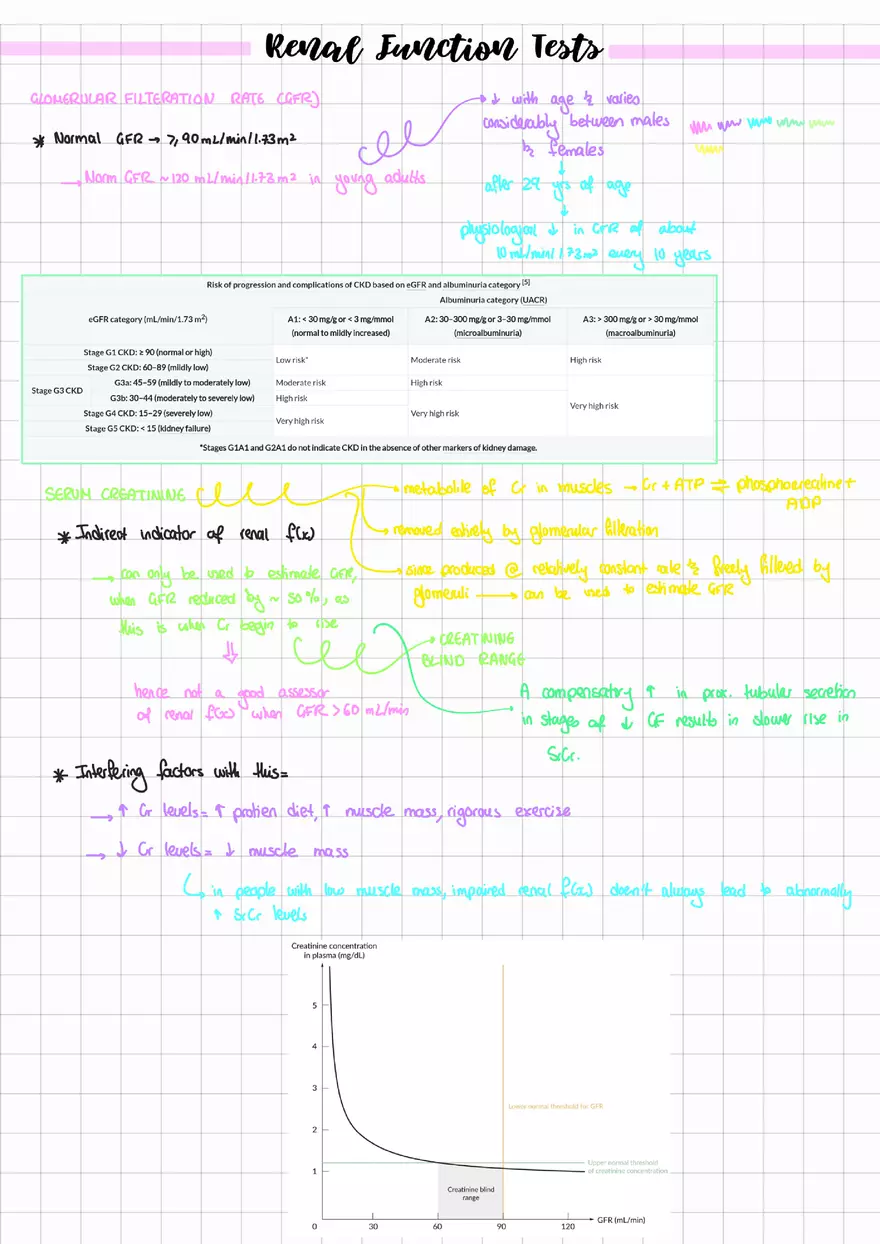 Renal Function Tests
GLOMERULAR FILTERATION RATE (GFR)
* Normal GFR → ≥ 90 mL/min/1.73m²
→ Norm GFR ~ 120 mL/min/1.73m² in young adults
→ ↓ with age & varies
considerably between males
& females
↓
after 29 yrs of age
↓
physiological ↓ in GFR of about
10 mL/min/1.73m² every 10 years
Risk of progression and complications of CKD based on eGFR and albuminuria category [5]
Albuminuria category (UACR)
eGFR category (mL/min/1.73 m²)
A1: < 30 mg/g or < 3 mg/mmol
(normal to mildly increased)
A2: 30–300 mg/g or 3–30 mg/mmol
(microalbuminuria)
A3: > 300 mg/g or > 30 mg/mmol
(macroalbuminuria)
Stage G1 CKD: ≥ 90 (normal or high)
Stage G2 CKD: 60–89 (mildly low)
Low risk*
Moderate risk
High risk
Stage G3 CKD
G3a: 45–59 (mildly to moderately low)
Moderate risk
High risk
G3b: 30–44 (moderately to severely low)
High risk
Very high risk
Very high risk
Stage G4 CKD: 15–29 (severely low)
Very high risk
Stage G5 CKD: < 15 (kidney failure)
*Stages G1A1 and G2A1 do not indicate CKD in the absence of other markers of kidney damage.
SERUM CREATININE
→ metabolite of Cr in muscles → Cr + ATP ⇌ phosphocreatine +
ADP
→ removed entirely by glomerular filteration
→ since produced @ relatively constant rate & freely filtered by
glomeruli → can be used to estimate GFR
* Indirect indicator of renal f(x)
→ can only be used to estimate GFR,
when GFR reduced by ~ 50%, as
this is when Cr begin to rise
⇓
hence not a good assessor
of renal f(x) when GFR > 60 mL/min
→ CREATININE
BLIND RANGE
→ A compensatory ↑ in prox. tubular secretion
in stages of ↓ GF results in slower rise in
SrCr.
* Interfering factors with this =
→ ↑ Cr levels = ↑ protien diet, ↑ muscle mass, rigorous exercise
→ ↓ Cr levels = ↓ muscle mass
↳ in people with low muscle mass, impaired renal f(x) doesn't always lead to abnormally
↑ SrCr levels
Creatinine concentration
in plasma (mg/dL)
5
4
3
2
1
0
Lower normal threshold for GFR
Upper normal threshold
of creatinine concentration
Creatinine blind
range
30
60
90
120
GFR (mL/min)